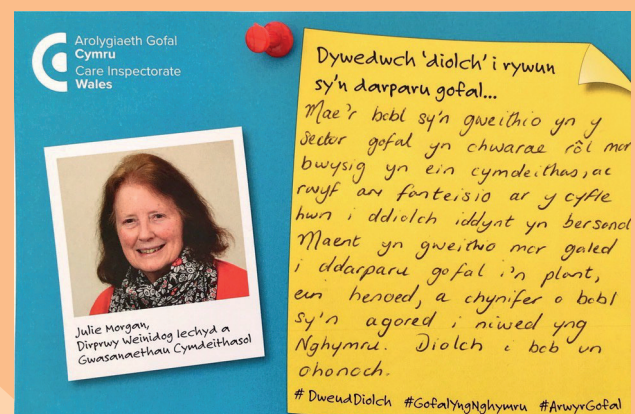 Arolygiaeth Gofal
Cymru
Care Inspectorate
Wales
Julie Morgan,
Dirprwy Weinidog Iechyd a
Gwasanaethau Cymdeithasol
Dywedwch ‘diolch’ i rywun
sy'n darparu gofal...
Mae'r bobl sy'n gweithio yn y
sector gofal yn chwarae rôl mor
bwysig yn ein cymdeithas, ac
rwyf am fanteisio ar y cyfle
hwn i ddiolch iddynt yn bersonol
Maent yn gweithio mor galed
i ddarparu gofal i'n plant,
ein henoed, a chynifer o bobl
sy'n agored i niwed yng
Nghymru. Diolch i bob un
ohonoch.
# DweudDiolch #GofalYngNghymru #ArwyrGofal